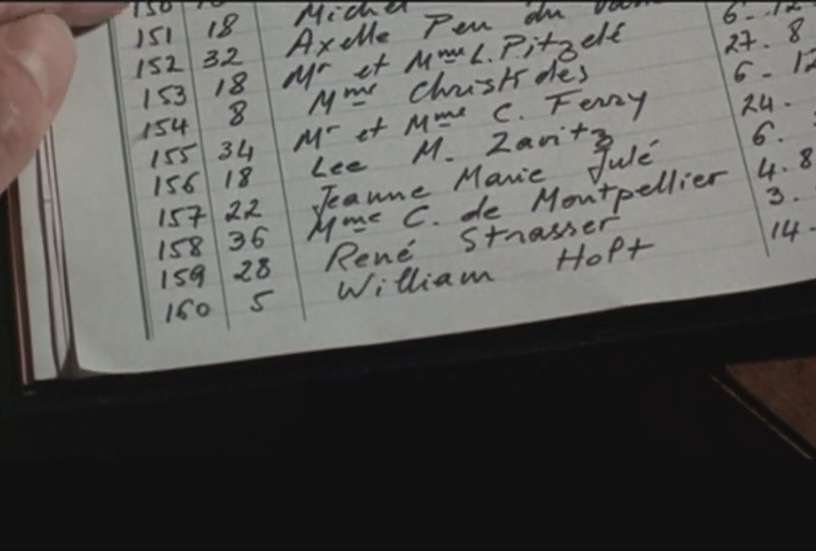 150
151 18 Michel
152 32 Axelle Peu du
153 18 Mr et Mme L. Pitzelé 6. . 12
154 8 Mme Christides 27. 8
155 34 Mr et Mme C. Ferry 6 - 12
156 18 Lee M. Zavitz 24.
157 22 Jeanne Marie Julé 6.
158 36 Mme C. de Montpellier 4. 8
159 28 René Strasser 3.
160 5 William Holt 14 -